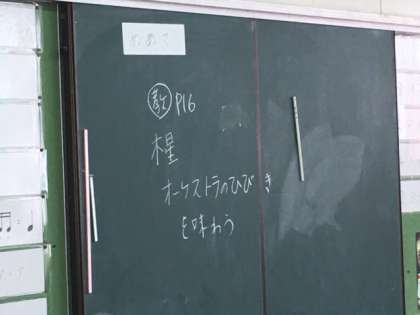 めあて
教 P16
木星
オーケストラのひびき
を味わう